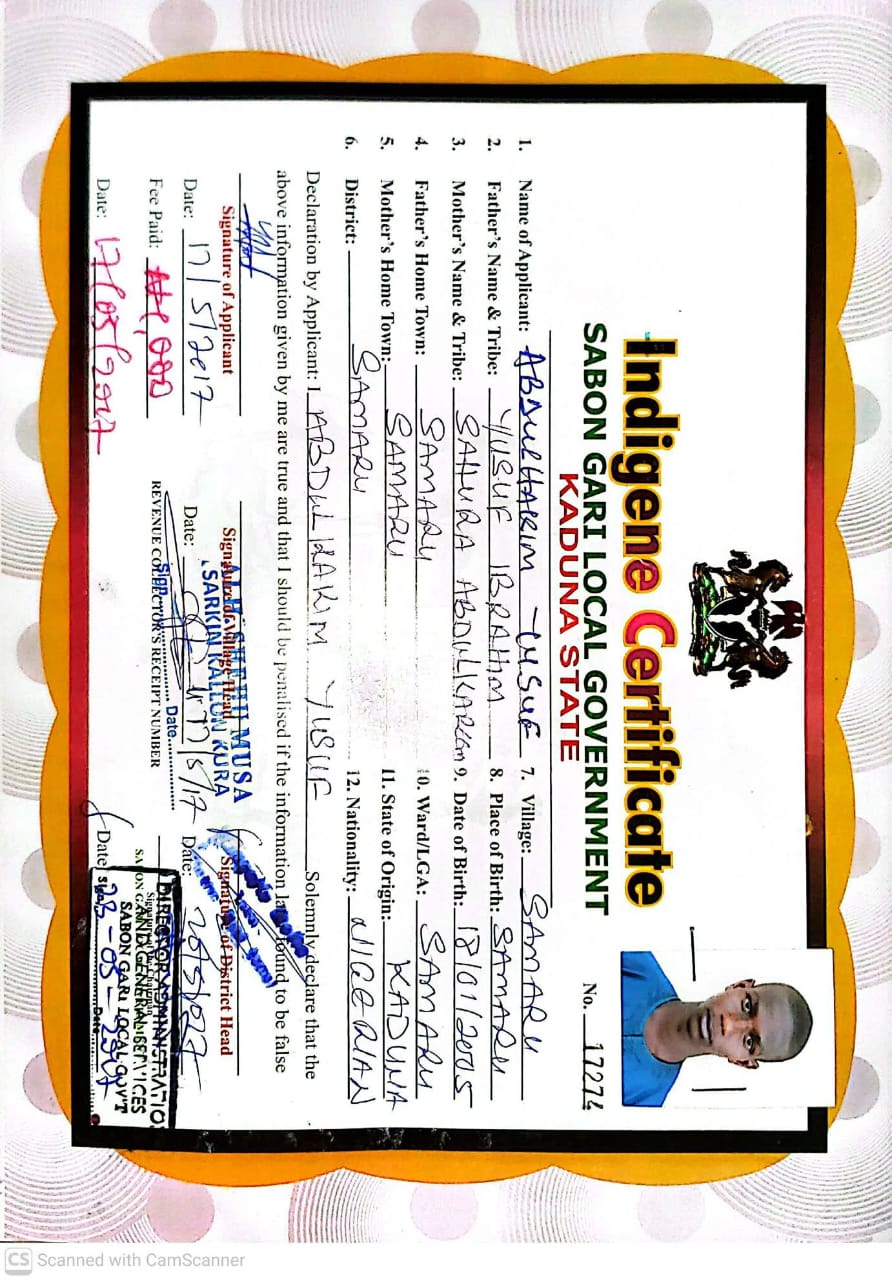 Indigene Certificate
SABON GARI LOCAL GOVERNMENT
KADUNA STATE
No. 17274
1. Name of Applicant: ABDULHAKIM YUSUF
2. Father's Name & Tribe: YUSUF IBRAHIM
3. Mother's Name & Tribe: SAHURA ABDULKAREEM
4. Father's Home Town: SAMARU
5. Mother's Home Town: SAMARU
6. District: SAMARU
7. Village: SAMARU
8. Place of Birth: SAMARU
9. Date of Birth: 18/01/2005
10. Ward/LGA: SAMARU
11. State of Origin: KADUNA
12. Nationality: NIGERIAN
Declaration by Applicant: I ABDULHAKIM YUSUF Solemnly declare that the
above information given by me are true and that I should be penalised if the information found to be false
Signature of Applicant
Date: 17/5/2017
Fee Paid: ₦1,000
Date: 17/05/2017
SHEHU MUSA
Signature of Village Head
SARKIN KALLON KURA
Date: 17/5/17
Sign Date
REVENUE COLLECTOR'S RECEIPT NUMBER
Signature of District Head
Date:
DIRECTOR ADMINISTRATION
AND GENERAL SERVICES
SABON GARI LOCAL GOVT
Date
CS Scanned with CamScanner